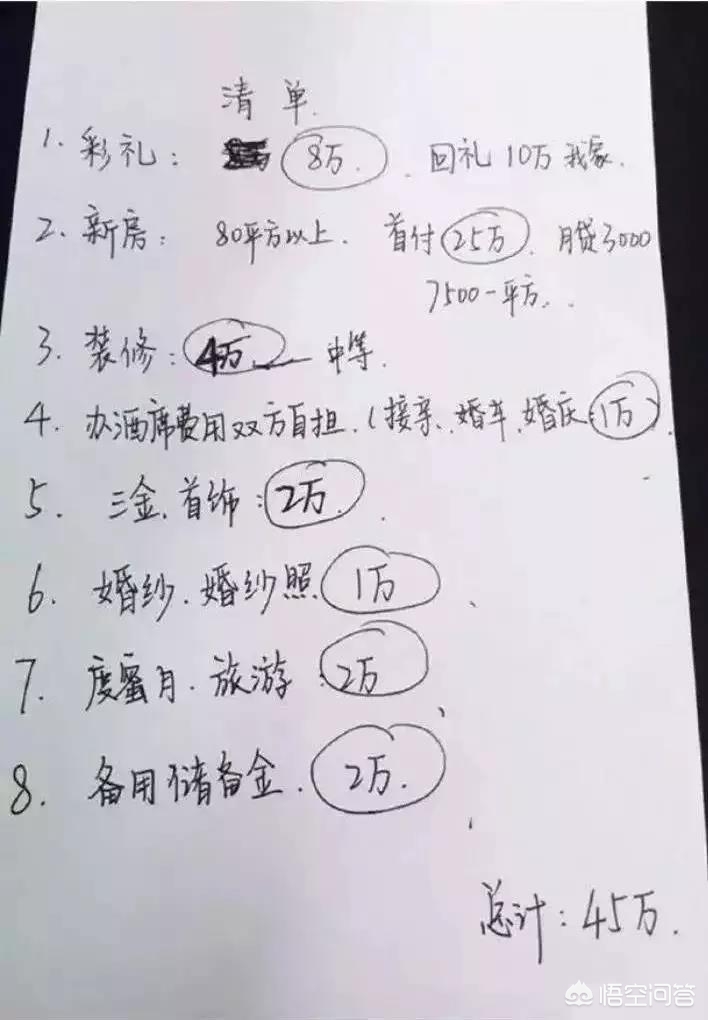 清单.
1. 彩礼: 8万. 回礼10万我家.
2. 新房: 80平方以上. 首付25万. 月贷3000
7500一平方..
3. 装修: 4万. 中等.
4. 办酒席费用双方自担. (接亲、婚车、婚庆:1万).
5. 三金.首饰:2万.
6. 婚纱.婚纱照 1万
7. 度蜜月.旅游:2万
8. 备用储备金. 2万.
总计:45万.
悟空问答